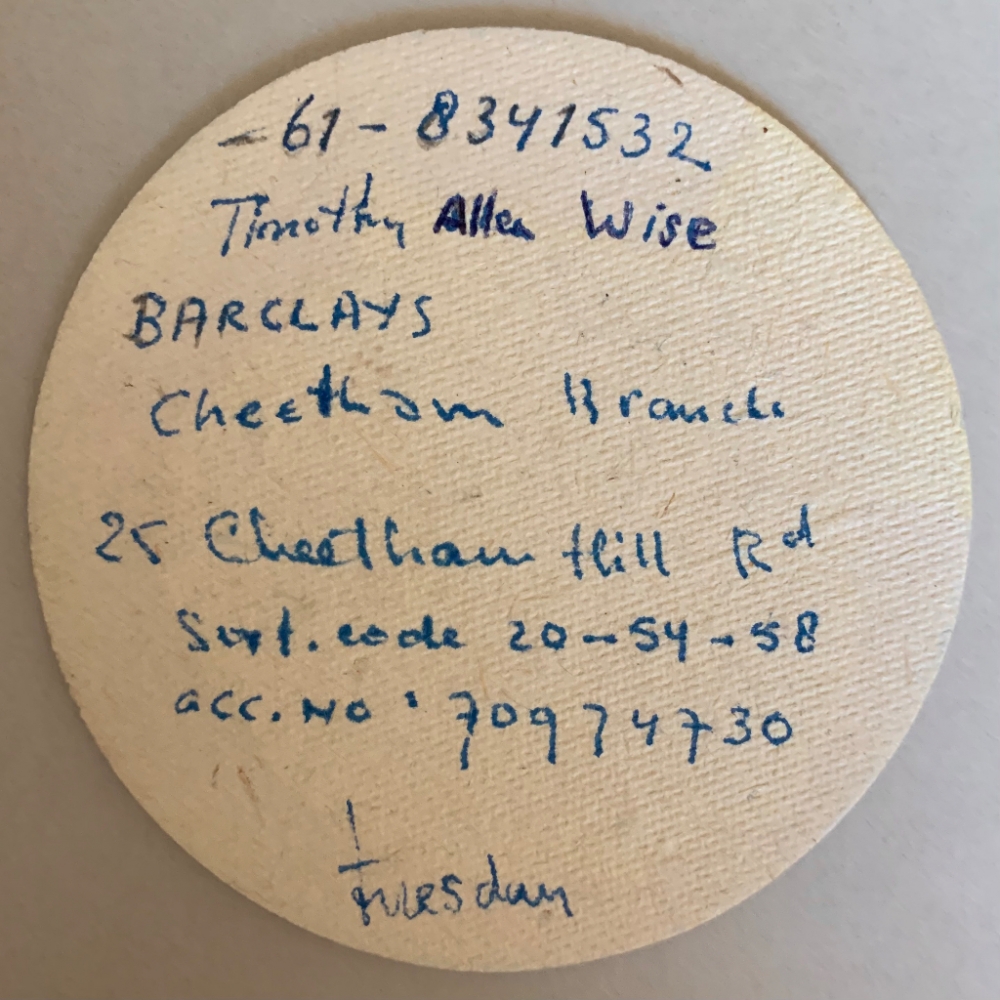 -61-8341532
Timothy Allen Wise
BARCLAYS
Cheetham Branch
25 Cheetham Hill Rd
Sort.code 20-54-58
acc.No: 70974730
Tuesday